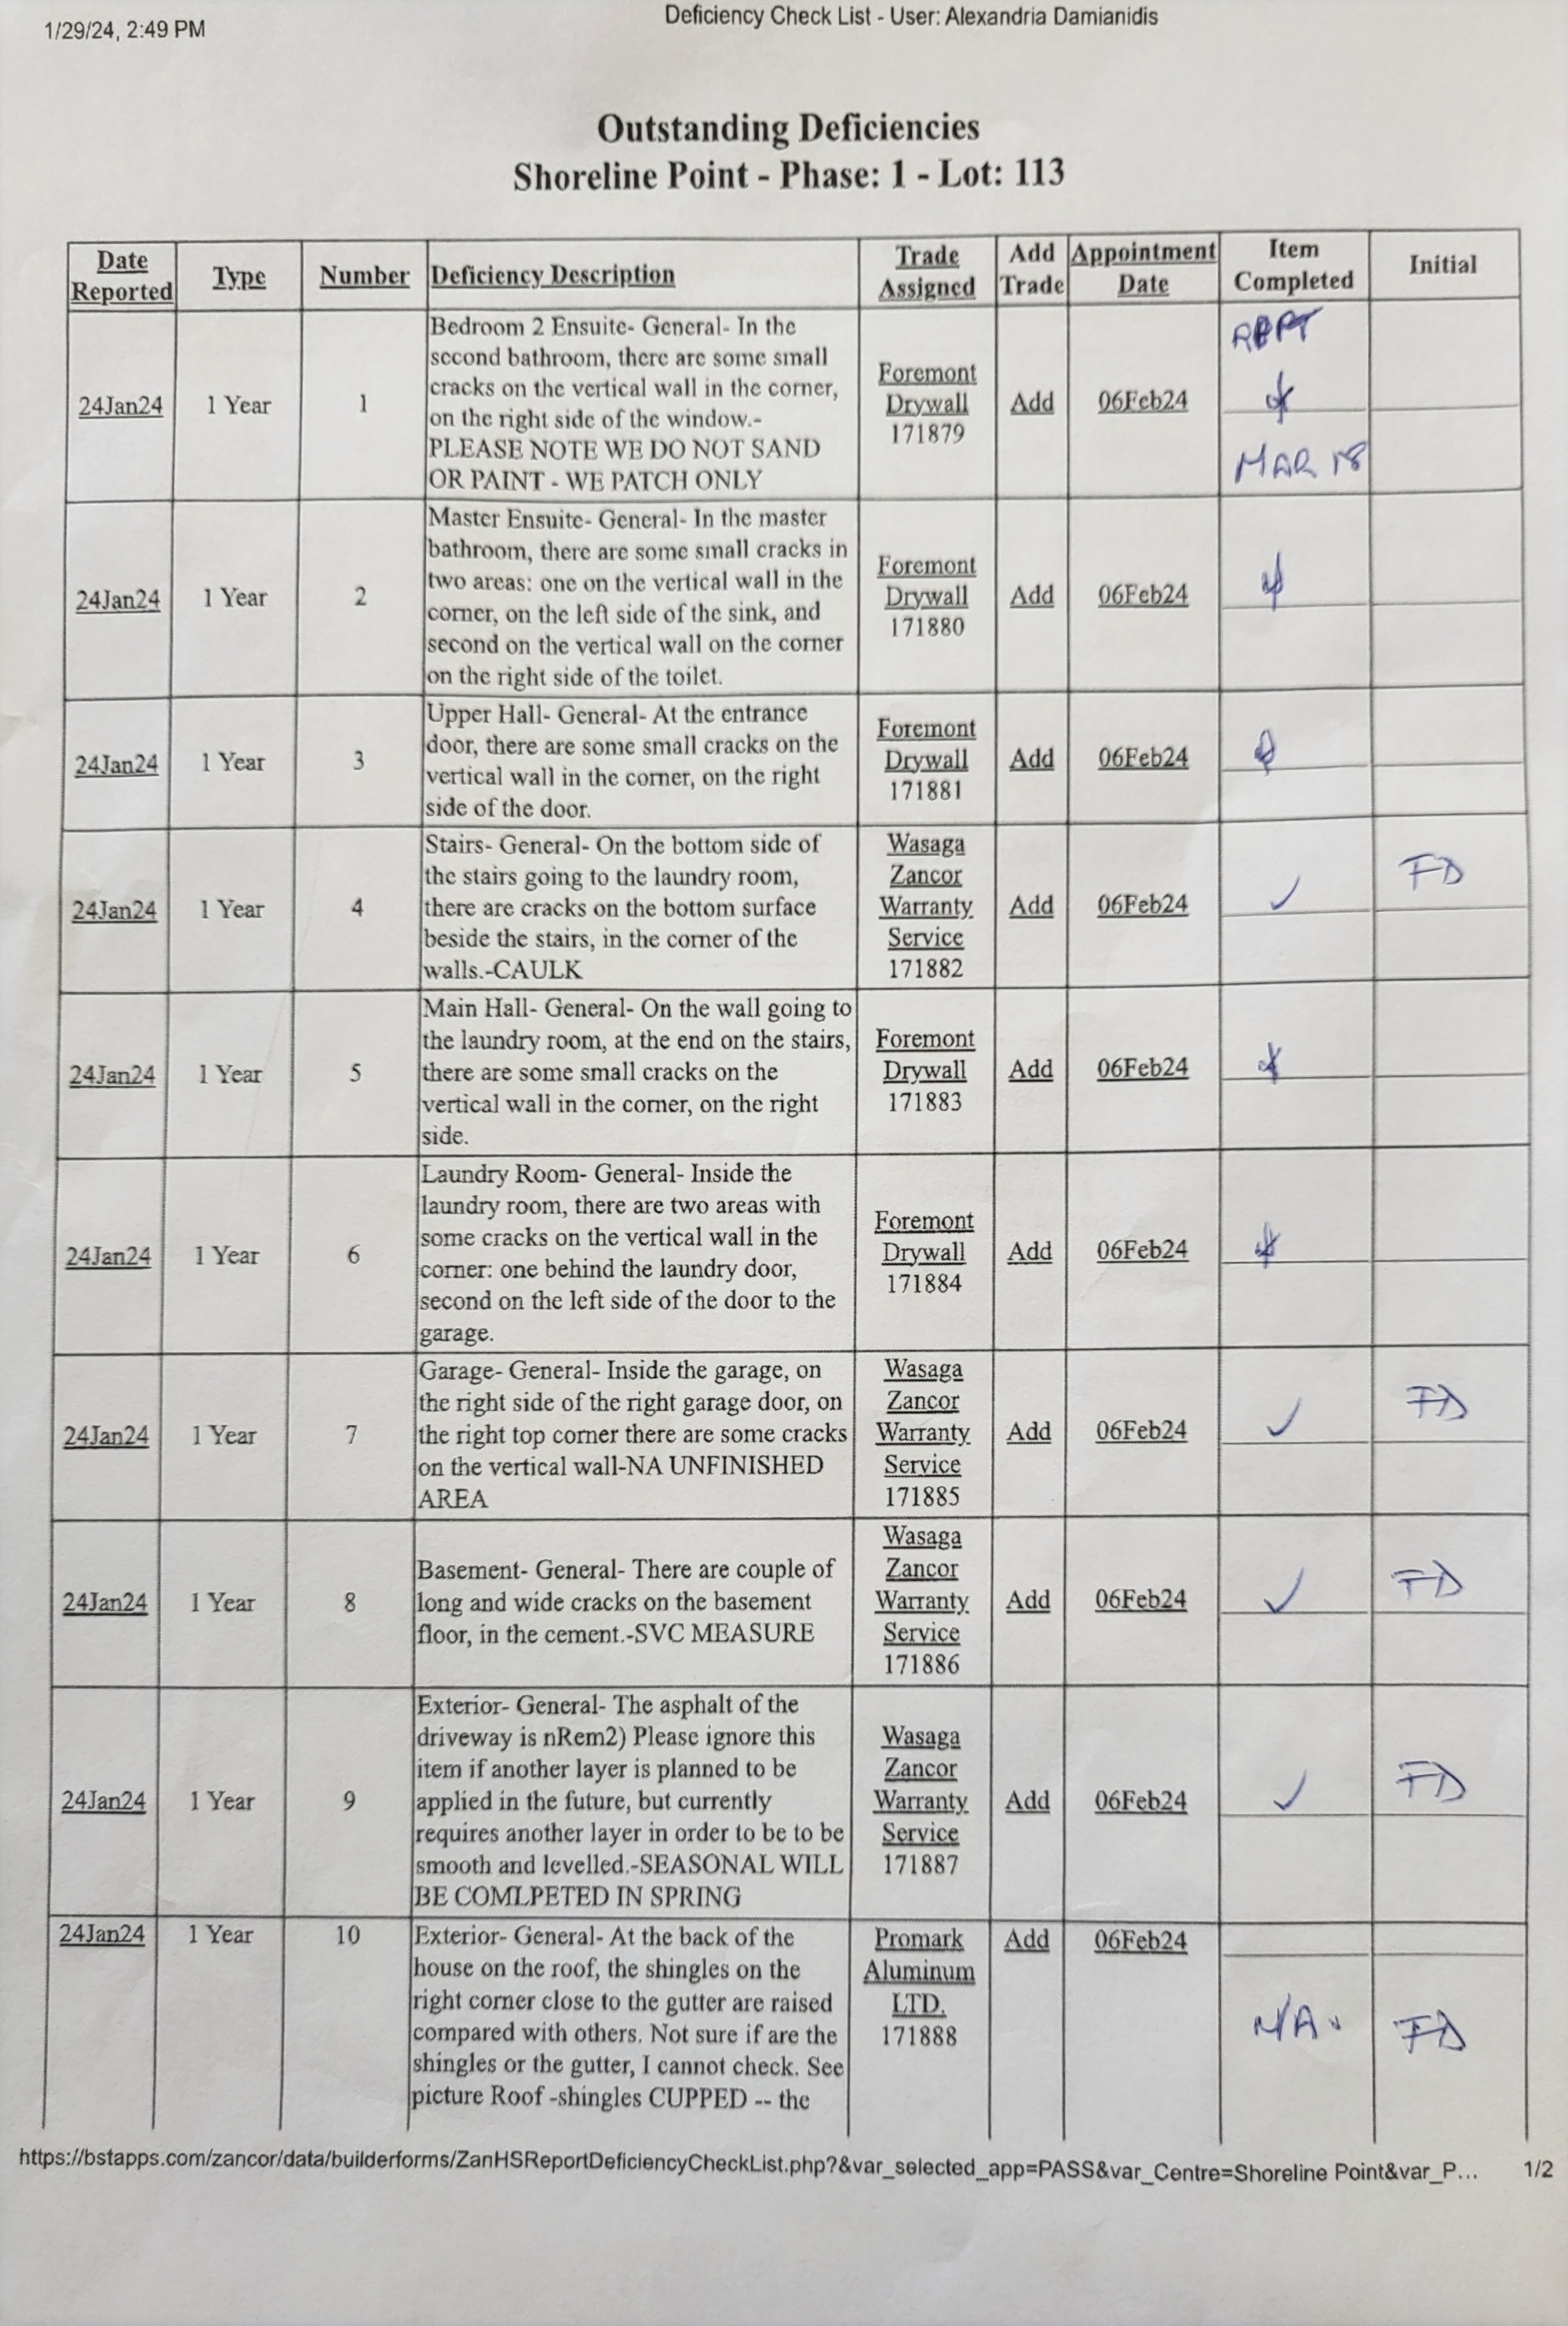 1/29/24, 2:49 PM
Deficiency Check List - User: Alexandria Damianidis
Outstanding Deficiencies
Shoreline Point - Phase: 1 - Lot: 113
Date Reported Type Number Deficiency Description Trade Assigned Add Trade Appointment Date Item Completed Initial
24Jan24 1 Year 1
Bedroom 2 Ensuite- General- In the
second bathroom, there are some small
cracks on the vertical wall in the corner,
on the right side of the window.-
PLEASE NOTE WE DO NOT SAND
OR PAINT - WE PATCH ONLY
Foremont
Drywall
171879
Add 06Feb24
MAR 18
24Jan24 1 Year 2
Master Ensuite- General- In the master
bathroom, there are some small cracks in
two areas: one on the vertical wall in the
corner, on the left side of the sink, and
second on the vertical wall on the corner
on the right side of the toilet.
Foremont
Drywall
171880
Add 06Feb24
24Jan24 1 Year 3
Upper Hall- General- At the entrance
door, there are some small cracks on the
vertical wall in the corner, on the right
side of the door.
Foremont
Drywall
171881
Add 06Feb24
24Jan24 1 Year 4
Stairs- General- On the bottom side of
the stairs going to the laundry room,
there are cracks on the bottom surface
beside the stairs, in the corner of the
walls.-CAULK
Wasaga
Zancor
Warranty
Service
171882
Add 06Feb24 ✓ FD
24Jan24 1 Year 5
Main Hall- General- On the wall going to
the laundry room, at the end on the stairs,
there are some small cracks on the
vertical wall in the corner, on the right
side.
Foremont
Drywall
171883
Add 06Feb24
24Jan24 1 Year 6
Laundry Room- General- Inside the
laundry room, there are two areas with
some cracks on the vertical wall in the
corner: one behind the laundry door,
second on the left side of the door to the
garage.
Foremont
Drywall
171884
Add 06Feb24
24Jan24 1 Year 7
Garage- General- Inside the garage, on
the right side of the right garage door, on
the right top corner there are some cracks
on the vertical wall-NA UNFINISHED
AREA
Wasaga
Zancor
Warranty
Service
171885
Add 06Feb24 ✓ FD
24Jan24 1 Year 8
Basement- General- There are couple of
long and wide cracks on the basement
floor, in the cement.-SVC MEASURE
Wasaga
Zancor
Warranty
Service
171886
Add 06Feb24 ✓ FD
24Jan24 1 Year 9
Exterior- General- The asphalt of the
driveway is nRem2) Please ignore this
item if another layer is planned to be
applied in the future, but currently
requires another layer in order to be to be
smooth and levelled.-SEASONAL WILL
BE COMLPETED IN SPRING
Wasaga
Zancor
Warranty
Service
171887
Add 06Feb24 ✓ FD
24Jan24 1 Year 10
Exterior- General- At the back of the
house on the roof, the shingles on the
right corner close to the gutter are raised
compared with others. Not sure if are the
shingles or the gutter, I cannot check. See
picture Roof -shingles CUPPED -- the
Promark
Aluminum
LTD.
171888
Add 06Feb24
N/A. FD
https://bstapps.com/zancor/data/builderforms/ZanHSReportDeficiencyCheckList.php?&var_selected_app=PASS&var_Centre=Shoreline Point&var_P... 1/2